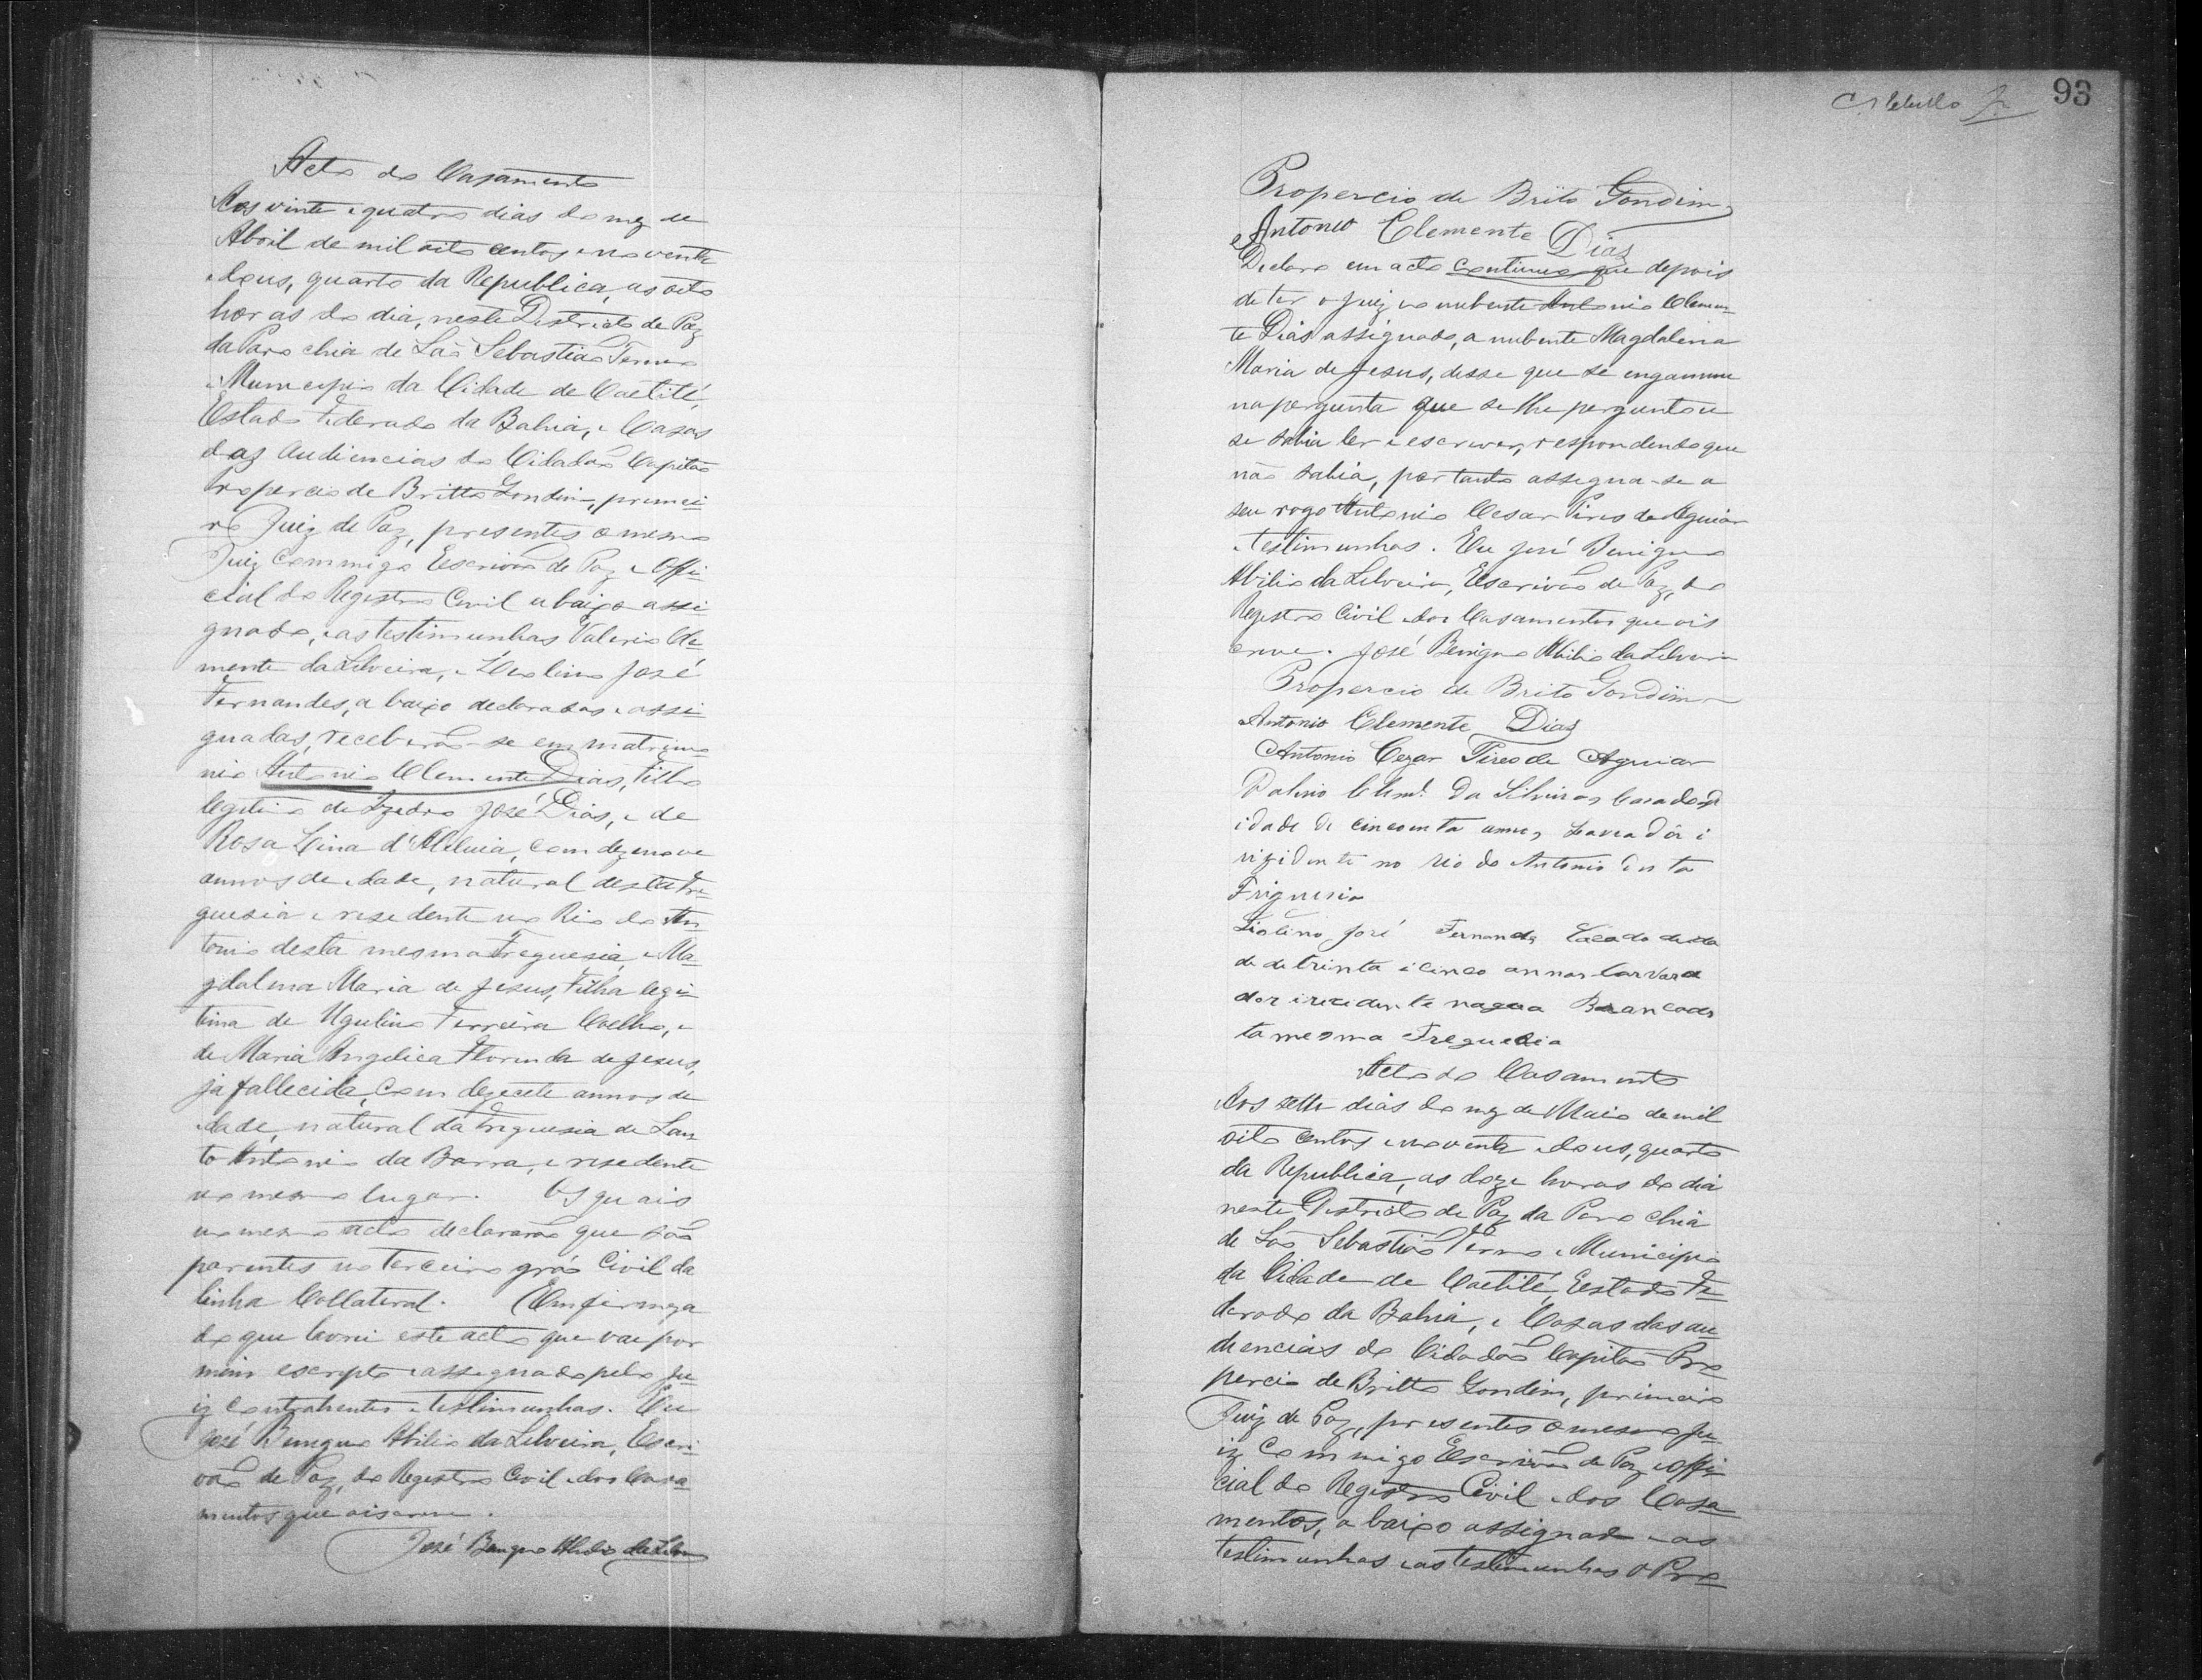 Acto do Casamento
Aos vinte e quatro dias do mez de
Abril de mil oito centos e noventa
e dous, quarto da Republica, as oito
horas do dia, neste Districto de Paz
da Parochia de São Sebastião Termo
e Municipio da Cidade de Caetité,
Estado Federado da Bahia, e Casas
das Audiencias do Cidadão Capitão
Propercio de Britto Gondim, primei-
ro Juiz de Paz, presentes o mesmo
Juiz commigo Escrivão de Paz e Offi-
cial do Registro Civil abaixo assi
gnado, e as testimunhas Valerio Cle-
mente da Silveira, e José
Fernandes, a baixo declarados e assi
gnadas, receberão-se em matrimo
nio Antonio Clemente Dias, Filho
legitimo de José Dias, e de
Rosa Lina d'Aleluia, com dezenove
annos de edade, natural desta Fre-
guesia e residente no Rio do An-
tonio desta mesma Freguesia, e Ma-
gdalena Maria de Jesus, Filha legi-
tima de Ugulino Ferreira Coelho, e
de Maria Angelica Florinda de Jesus,
já fallecida, com dezecete annos de
edade, natural da Freguesia de San
to Antonio da Barra, e residente
no mesmo lugar. Os quais
no mesmo acto declararão que são
parentes no terceiro gráo Civil da
linha Collateral. Em firmeza
do que lavrei este acto que vae por
mim escripto e assignado pelo Ju-
iz contrahentes e testimunhas. Eu
José Benigno Abilio da Silveira, Escri-
vão de Paz, do Registro Civil e dos Casa-
mentos que o iscrevi.
José Benigno Abilio da Silva
93
Propercio de Brito Gondim
Antonio Clemente Dias
Declaro em acto continuo que depois
de ter o Juiz e o nubente Antonio Clemen-
te Dias assignado, a nubente Magdalena
Maria de Jesus, disse que se enganou
na pergunta que se lhe perguntou
se sabia ler e escrever, respondendo que
não sabia, portanto assigna-se a
seu rogo Antonio Cesar Pires de Aguiar
e testimunhas. Eu José Benigno
Abilio da Silveira, Escrivão de Paz, do
Registro Civil e dos Casamentos que o is
crevi. José Benigno Abilio da Silveira
Propercio de Brito Gondim
Antonio Clemente Dias
Antonio Cezar Pires de Aguiar
Valerio Clem.e Da Silveira, Casado d
idade de cincoenta annos Lavrador i
rizidente no Rio do Antonio desta
Friguezia
José Fernandes Cazado deida
de de trinta e cinco annos Larvara
dor irezidente nagoa Brancades
ta mesma Freguezia
Acto do Casamento
Aos sette dias do mez de Maio de mil
oito centos e noventa e dous, quarto
da Republica, as doze horas do dia
neste Districto de Paz da Parochia
de São Sebastião Termo e Municipio
da Cidade de Caetité, Estado Fe-
derado da Bahia, e Casas das au-
diencias do Cidadão Capitão Pro-
percio de Britto Gondim, primeiro
Juiz de Paz, presentes o mesmo Ju-
iz commigo Escrivão de Paz e Offi-
cial do Registro Civil e dos Casa-
mentos, a baixo assignado e as
testimunhas e as testimunhas o Pro-